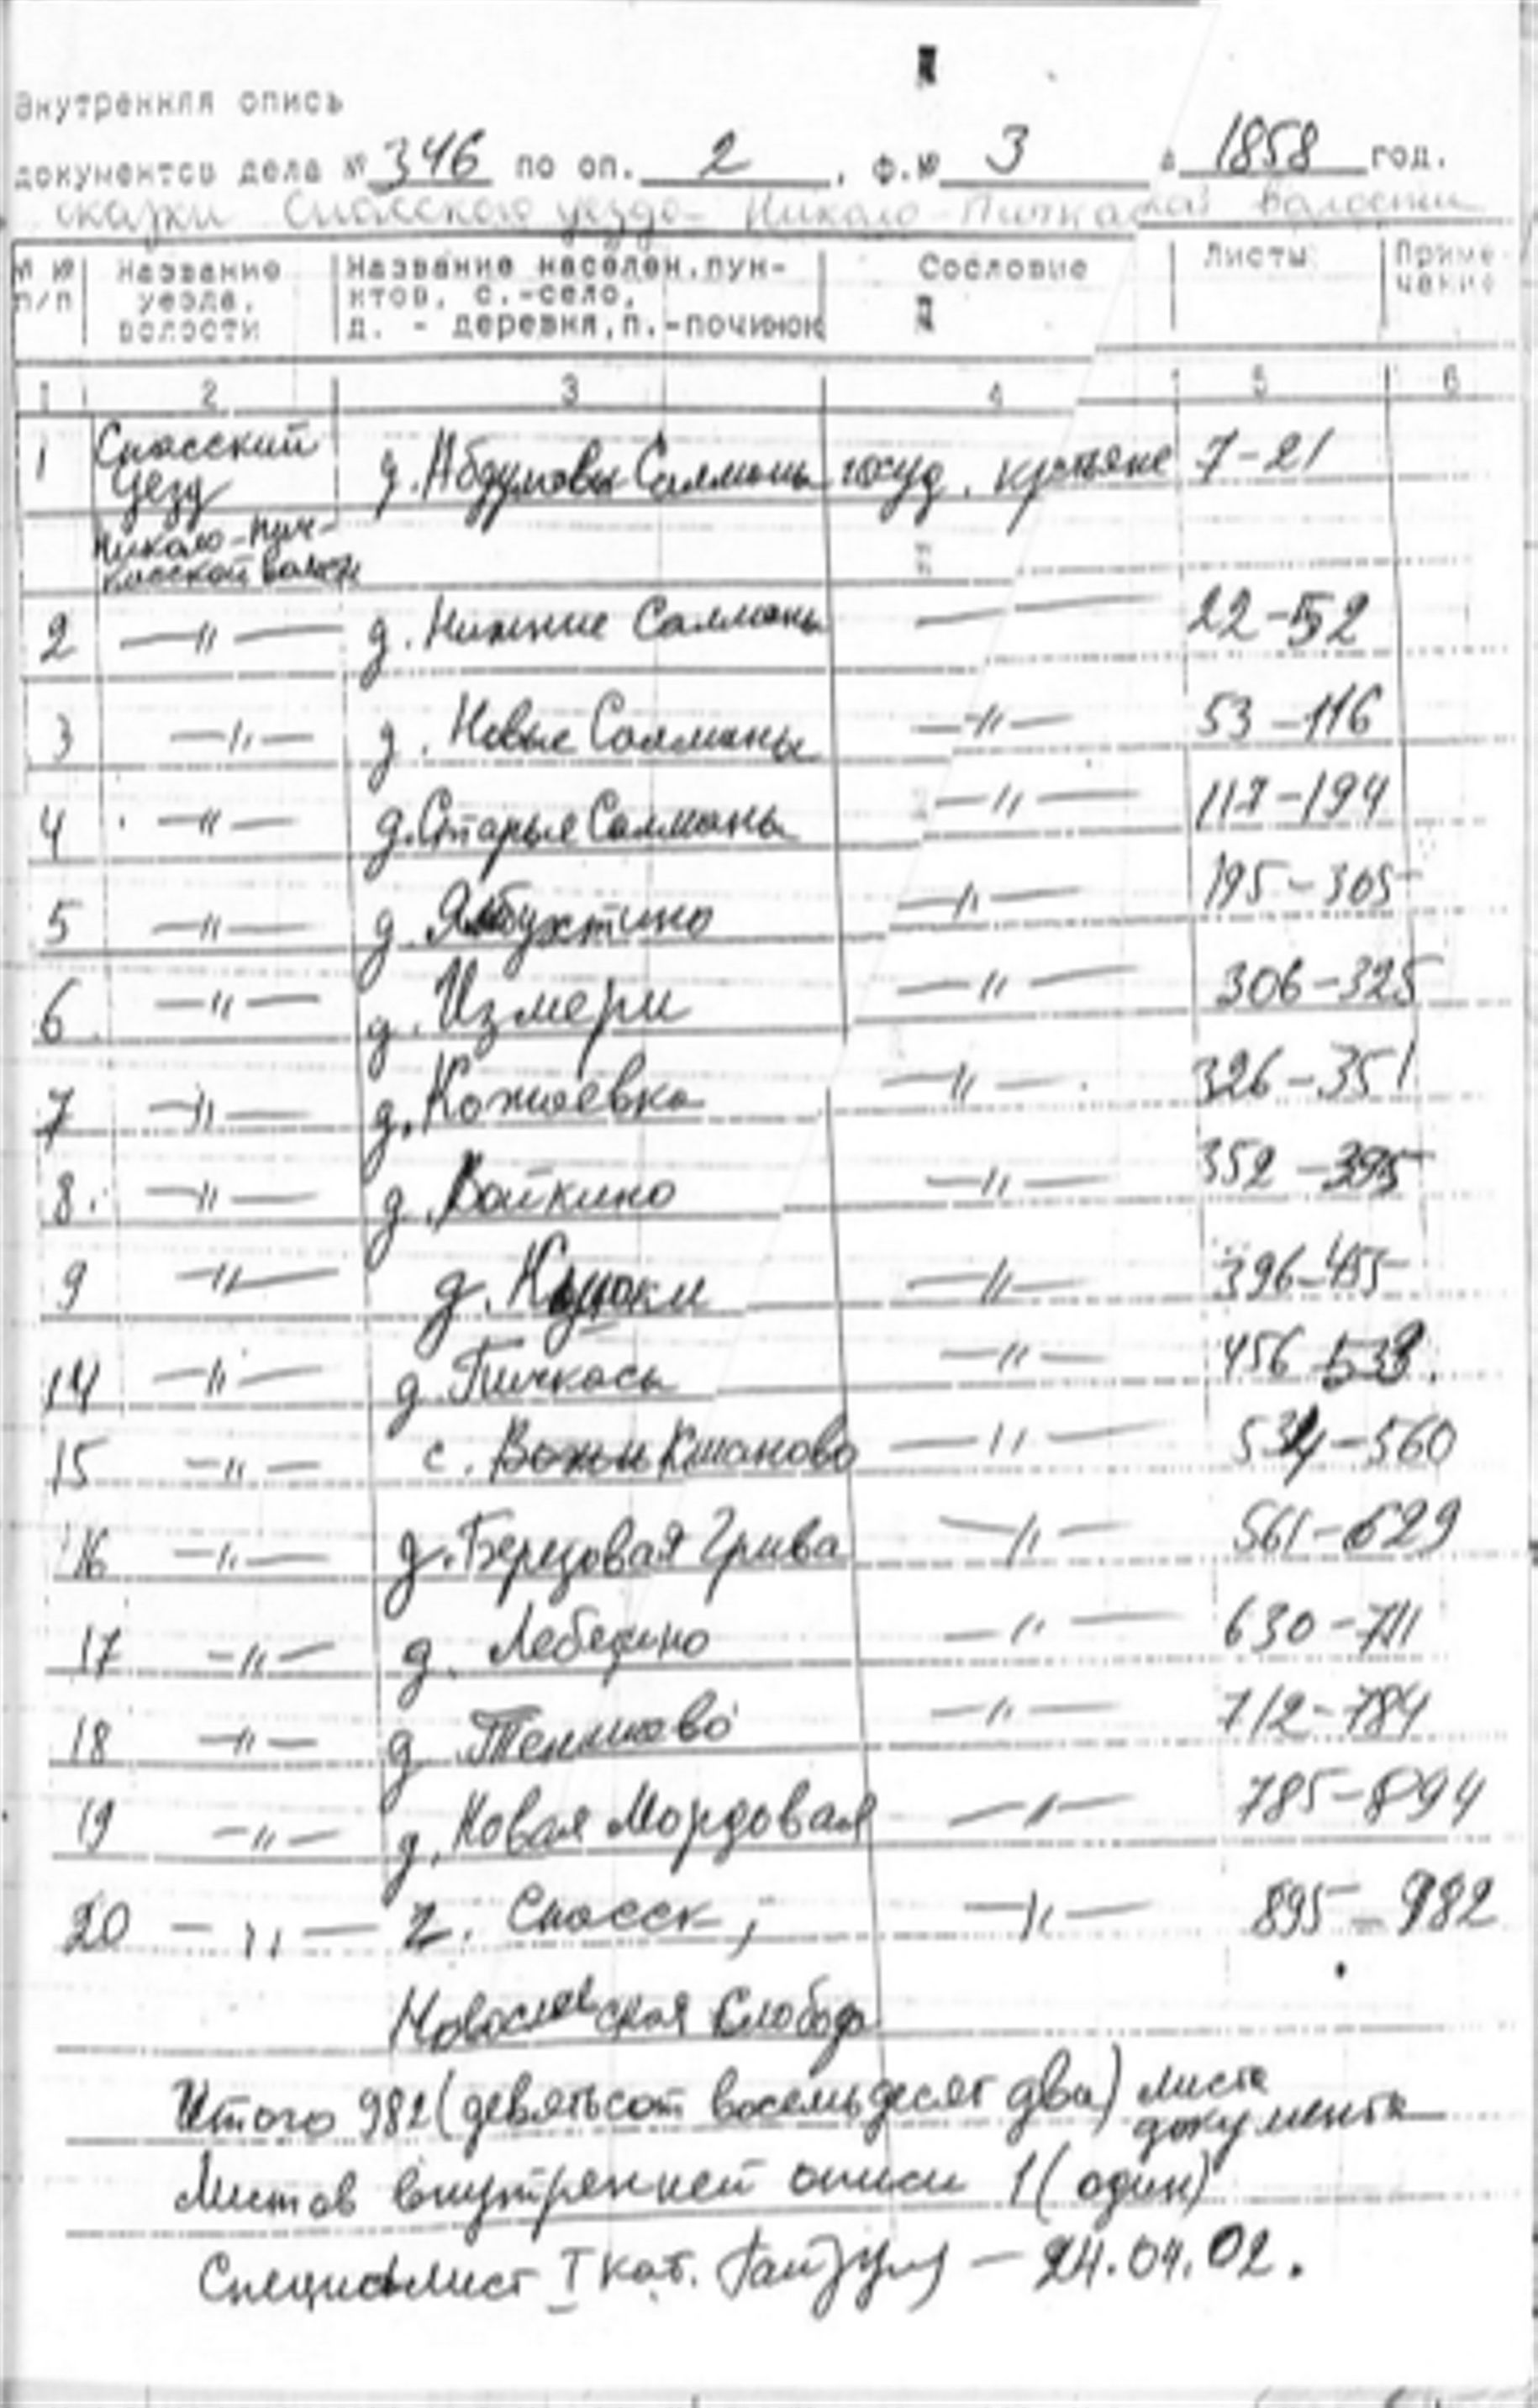 Внутренняя опись
документов дела № 346 по оп. 2, ф.№ 3 в 1858 год.
сказки Спасского уезда Николо-Пичкасской волости
№ № п/п | Название уезда, волости | Название населен.пунктов, с.-село, д. - деревня, п.-починок | Сословие | Листы | Примечание
1 2 3 4 5 6
1 Спасский уезд д. Абдуловы Салманы госуд. кр-тьяне 7-21
Николо-Пич-
касской волости
2 —〃— д. Нижние Салманы —— 22-52
3 —〃— д. Новые Салманы —〃— 53-116
4 —〃— д. Старые Салманы —〃— 117-194
5 —〃— д. Ямбухтино —〃— 195-305
6 —〃— д. Измери —〃— 306-325
7 —〃— д. Кожаевка —〃— 326-351
8. —〃— д. Войкино —〃— 352-395
9 —〃— д. —〃— 396-455
14 —〃— д. Пичкасы —〃— 456-533.
15 —〃— с. —〃— 534-560
16 —〃— д. Березовая Грива —〃— 561-629
17 —〃— д. Лебедино —〃— 630-711
18 —〃— д. Тенишево —〃— 712-784
19 —〃— д. Новая Мордовая —〃— 785-894
20 —〃— г. Спасск, —〃— 895-982
Слобода
Итого 982 (девятьсот восемьдесят два) листа
документа
Листов внутренней описи 1 (один)
Специалист I кат. — 24.04.02.